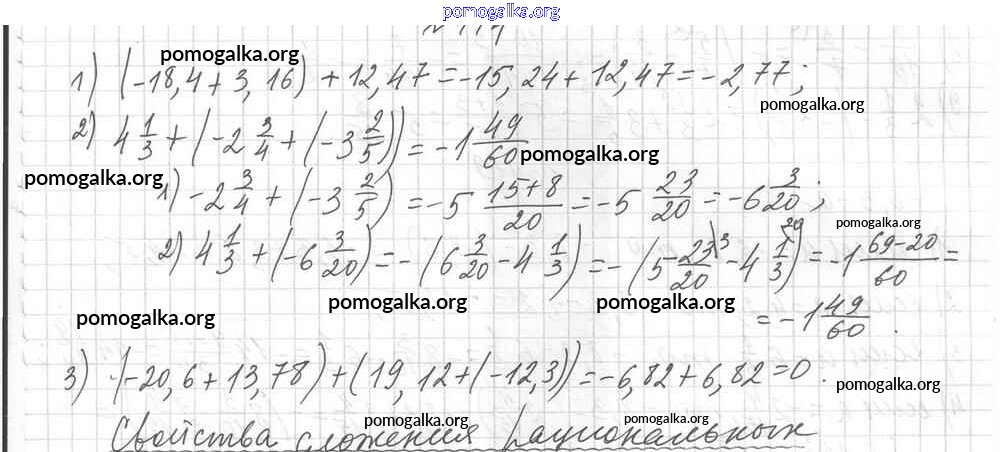 pomogalka.org
pomogalka.org
1) (-18,4 + 3,16) + 12,47 = -15,24 + 12,47 = -2,77;
pomogalka.org
2) 4 1/3 + (-2 3/4 + (-3 2/5)) = -1 49/60
pomogalka.org
pomogalka.org
1) -2 3/4 + (-3 2/5) = -5 (15+8)/20 = -5 23/20 = -6 3/20;
pomogalka.org
2) 4 1/3 + (-6 3/20) = -(6 3/20 - 4 1/3) = -(5 23/20\3 - 4 1/3\20) = -1 (69-20)/60 =
pomogalka.org
pomogalka.org
pomogalka.org
= -1 49/60.
3) (-20,6 + 13,78) + (19,12 + (-12,3)) = -6,82 + 6,82 = 0.
pomogalka.org
pomogalka.org
pomogalka.org
Свойства сложения рациональных